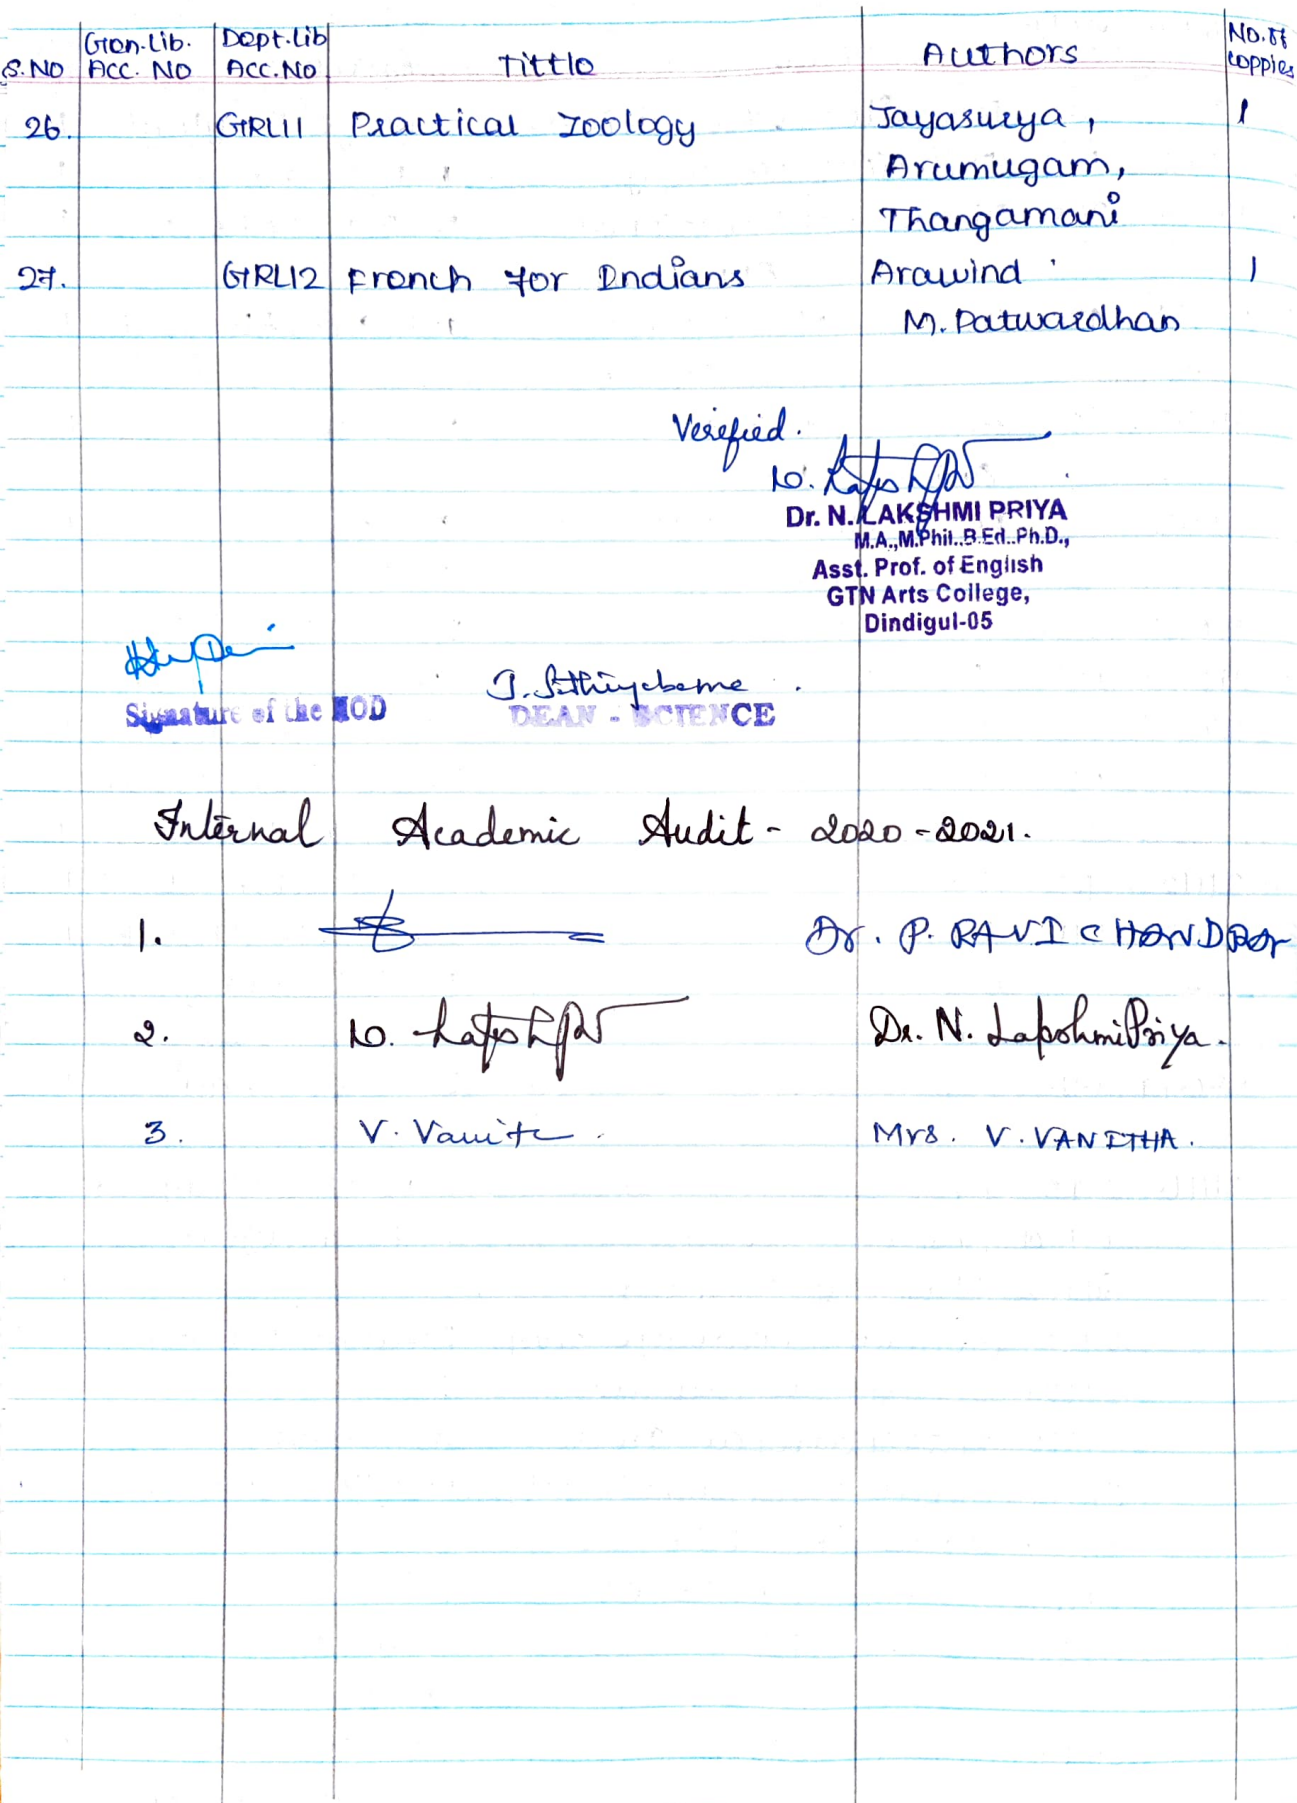 S.NO Gen.Lib. ACC. NO Dept.Lib ACC.NO Tittle Authors No.of coppies
26. GRL11 Practical Zoology Jayasurya, 1
Arumugam,
Thangamani
27. GRL12 French for Indians Arawind 1
M. Patwardhan
Verified.
Dr. N. LAKSHMI PRIYA
M.A.,M.Phil.,B.Ed.,Ph.D.,
Asst. Prof. of English
GTN Arts College,
Dindigul-05
Signature of the HOD DEAN - SCIENCE
Internal Academic Audit - 2020 - 2021.
1. Dr. P. RAVICHANDRAN
2. Dr. N. LakshmiPriya.
3. V. Vanitha. Mrs. V. VANITHA.